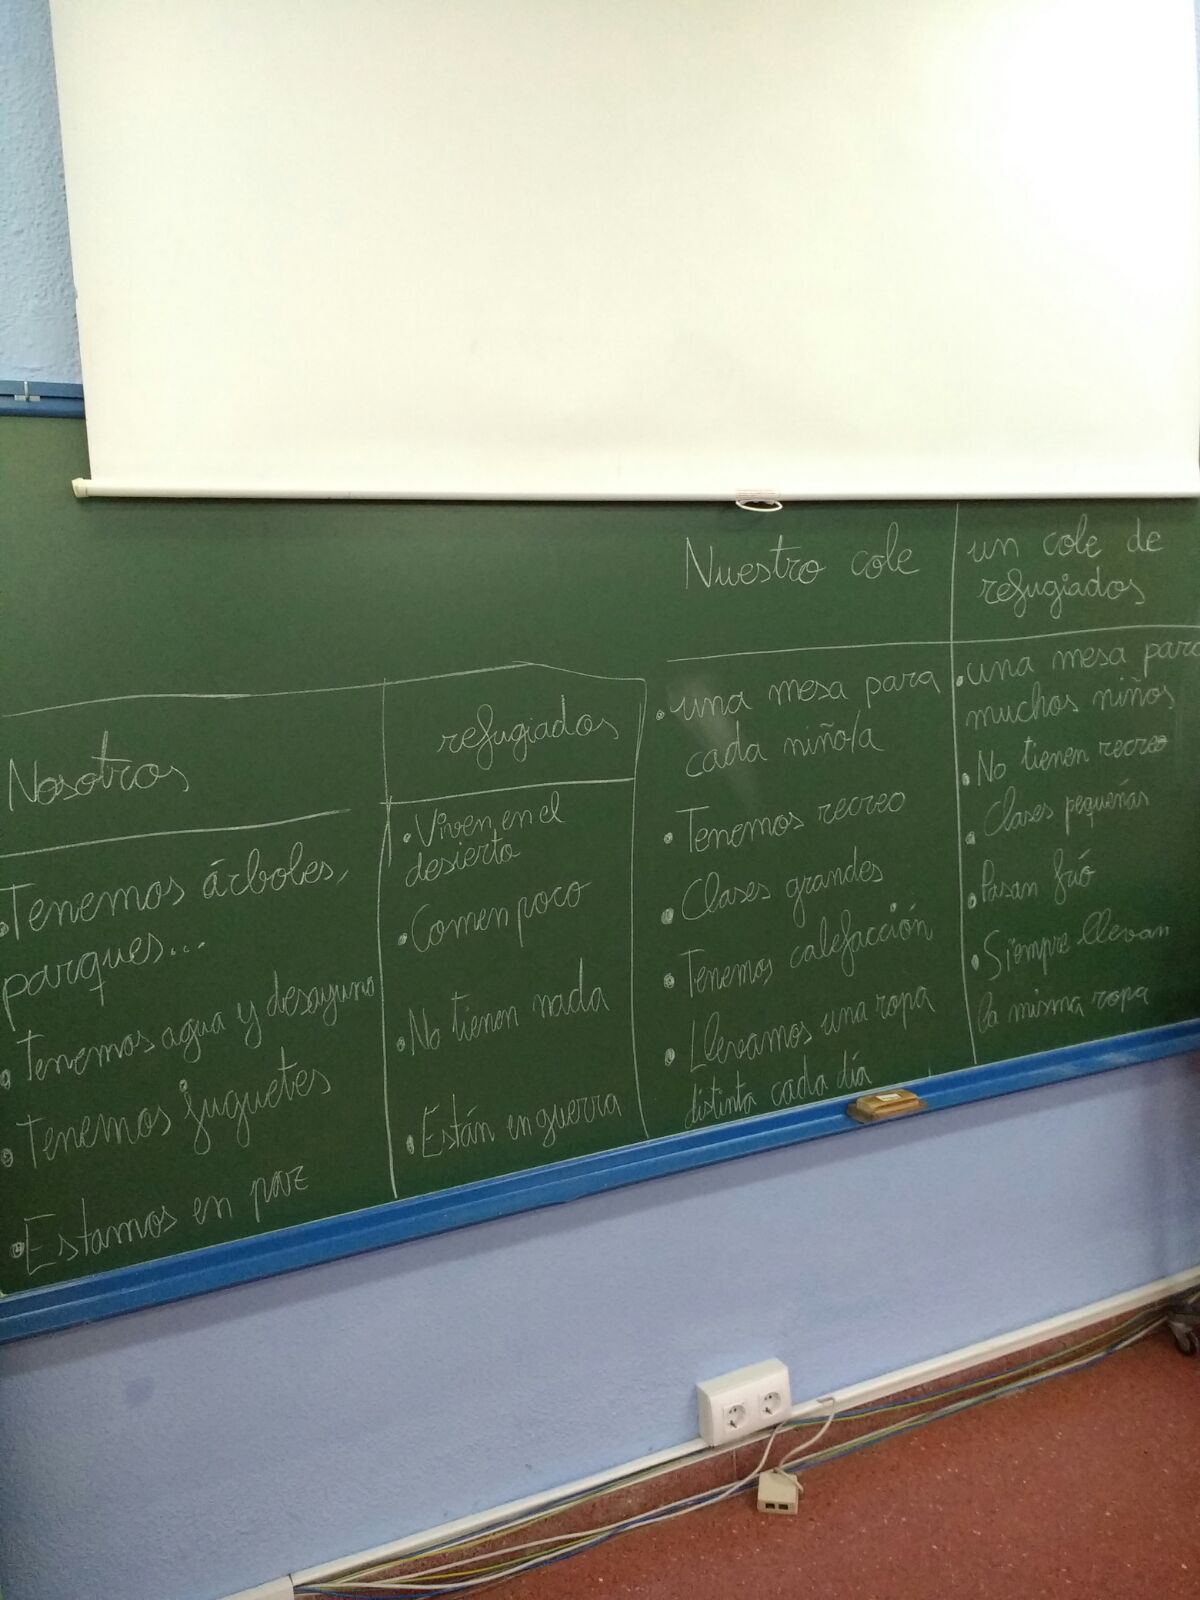 Nosotros
• Tenemos árboles,
parques...
• Tenemos agua y desayuno
• Tenemos juguetes
• Estamos en paz
refugiados
• Viven en el
desierto
• Comen poco
• No tienen nada
• Están en guerra
Nuestro cole
• una mesa para
cada niño/a
• Tenemos recreo
• Clases grandes
• Tenemos calefacción
• Llevamos una ropa
distinta cada día
un cole de
refugiados
• una mesa para
muchos niños
• No tienen recreo
• Clases pequeñas
• Pasan frío
• Siempre llevan
la misma ropa